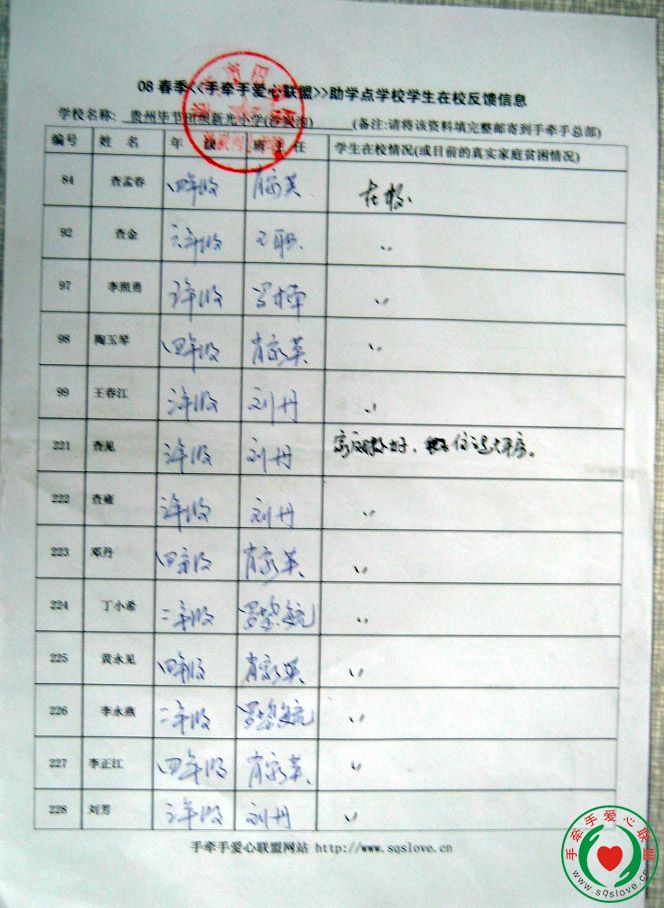 08春季<<手牵手爱心联盟>>助学点学校学生在校反馈信息
学校名称: 贵州毕节田坝新光小学 (备注:请将该资料填完整邮寄到手牵手总部)
编号 姓 名 年 级 班 主 任 学生在校情况(或目前的真实家庭贫困情况)
84 查孟春 四年级 肖家英 在校
92 查金 六年级 〃
97 李照勇 年级 〃
98 陶玉琴 四年级 肖家英 〃
99 王春江 三年级 刘丹 〃
221 查见 三年级 刘丹
222 查雍 三年级 刘丹 〃
223 邓丹 四年级 肖家英 〃
224 丁小希 二年级 〃
225 黄永见 四年级 肖家英 〃
226 李永燕 二年级 〃
227 李正江 四年级 肖家英 〃
228 刘芳 三年级 刘丹 〃
手牵手爱心联盟网站 http://www.sqslove.cn
手牵手爱心联盟
www.sqslove.cn